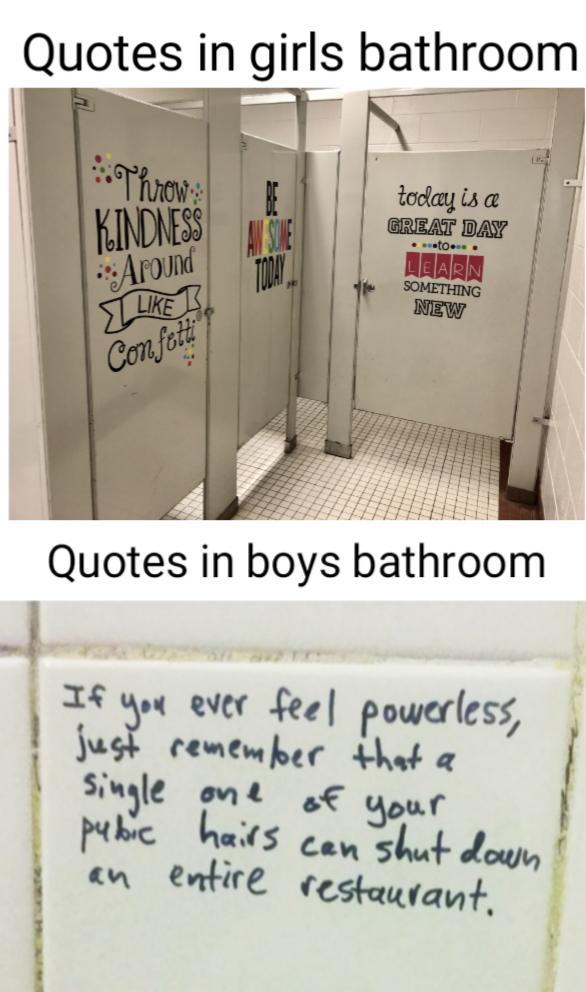 Quotes in girls bathroom
Throw
KINDNESS
Around
LIKE
Confetti
BE
AWESOME
TODAY
today is a
GREAT DAY
to
LEARN
SOMETHING
NEW
Quotes in boys bathroom
If you ever feel powerless,
just remember that a
single one of your
pubic hairs can shut down
an entire restaurant.